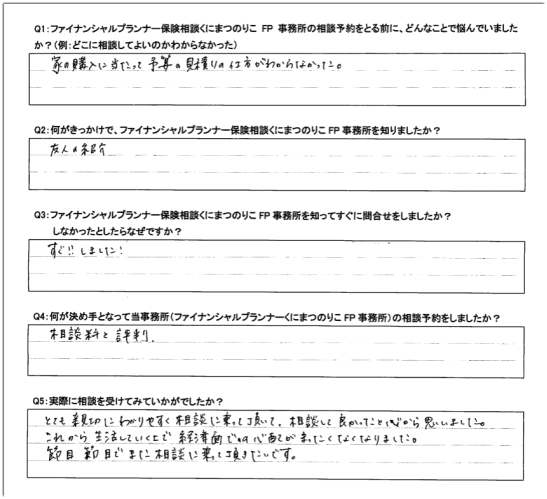 Q1:ファイナンシャルプランナー保険相談くにまつのりこ FP 事務所の相談予約をとる前に、どんなことで悩んでいました
か?(例:どこに相談してよいのかわからなかった)
家の購入に当たって予算の見積りの仕方がわからなかった。
Q2:何がきっかけで、ファイナンシャルプランナー保険相談くにまつのりこ FP 事務所を知りましたか?
友人の紹介
Q3:ファイナンシャルプランナー保険相談くにまつのりこ FP 事務所を知ってすぐに問合せをしましたか?
しなかったとしたらなぜですか?
すぐ!! しました!
Q4:何が決め手となって当事務所(ファイナンシャルプランナーくにまつのりこ FP 事務所)の相談予約をしましたか?
相談料と評判.
Q5:実際に相談を受けてみていかがでしたか?
とても親切にわかりやすく相談に乗って頂いて、相談して良かったと心から思いました。
これから生活していく上で経済面での心配がまったくなくなりました。
節目節目でまた相談に乗って頂きたいです。